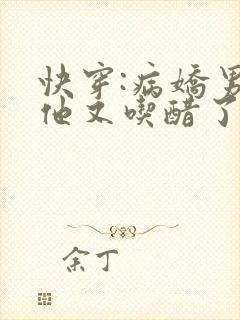 快穿:病嬌男
他又喫醋了
余丁